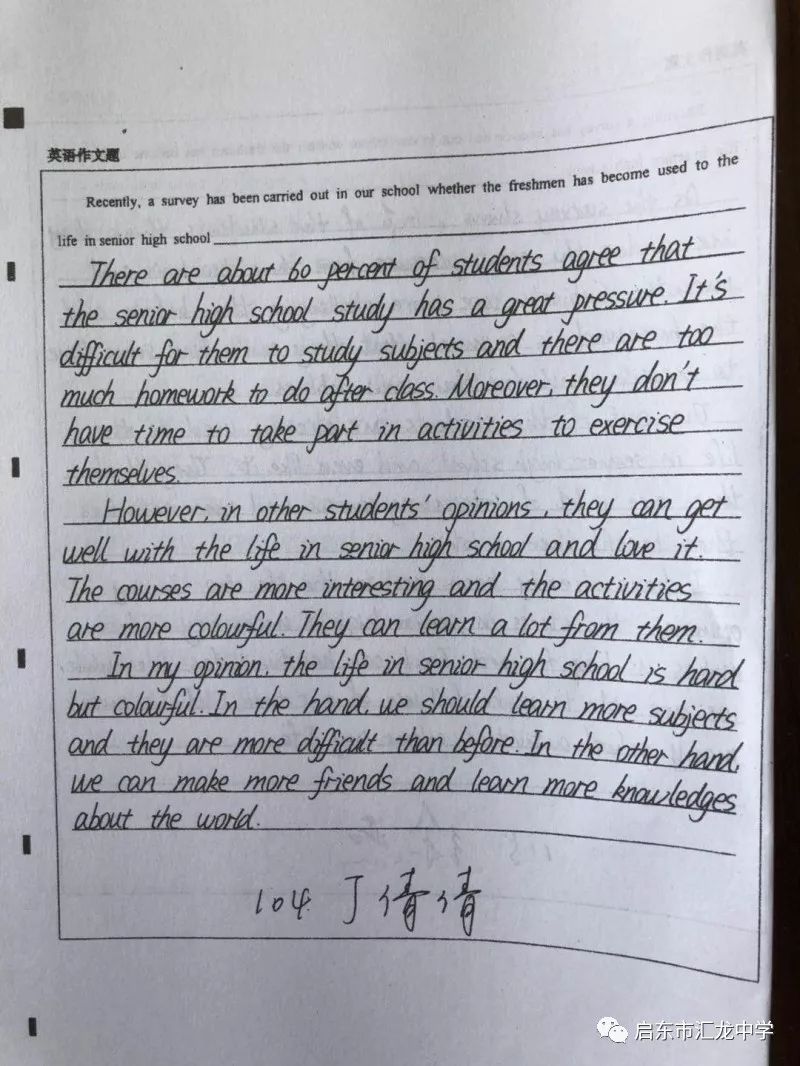 英语作文题
Recently, a survey has been carried out in our school whether the freshmen has become used to the
life in senior high school
There are about 60 percent of students agree that
the senior high school study has a great pressure. It's
difficult for them to study subjects and there are too
much homework to do after class. Moreover, they don't
have time to take part in activities to exercise
themselves.
However, in other students' opinions, they can get
well with the life in senior high school and love it.
The courses are more interesting and the activities
are more colourful. They can learn a lot from them.
In my opinion, the life in senior high school is hard
but colourful. In the hand, we should learn more subjects
and they are more difficult than before. In the other hand,
we can make more friends and learn more knowledges
about the world.
104. 丁倩倩
启东市汇龙中学